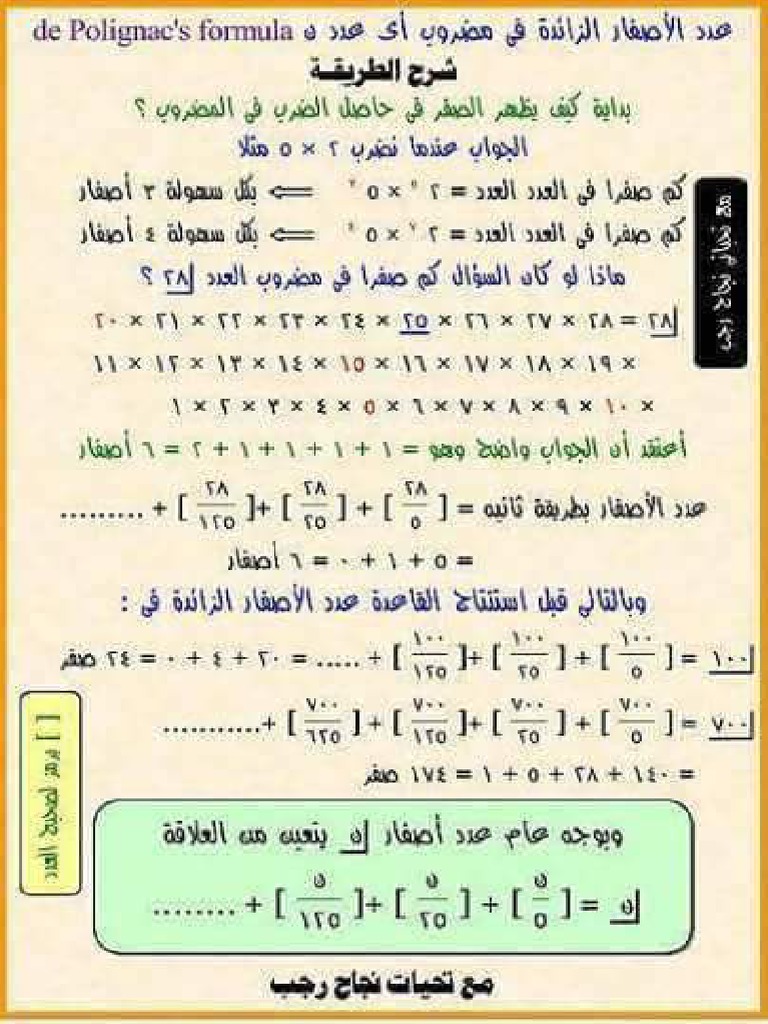 عدد الأصفار الزائدة فى مضروب أى عدد ن de Polignac's formula
شرح الطريقة
بداية كيف يظهر الصفر فى حاصل الضرب فى المضروب ؟
الجواب عندما نضرب ٢ × ٥ مثلا
كم صفرا فى العدد العدد = ٢ × ٥ ⟸ بكل سهولة ٣ أصفار
كم صفرا فى العدد العدد = ٢ × ٥ ⟸ بكل سهولة ٤ أصفار
ماذا لو كان السؤال كم صفرا فى مضروب العدد ٢٨ ؟
٢٨ = ٢٨ × ٢٧ × ٢٦ × ٢٥ × ٢٤ × ٢٣ × ٢٢ × ٢١ × ٢٠
× ١٩ × ١٨ × ١٧ × ١٦ × ١٥ × ١٤ × ١٣ × ١٢ × ١١
× ١٠ × ٩ × ٨ × ٧ × ٦ × ٥ × ٤ × ٣ × ٢ × ١
أعتقد أن الجواب واضح وهو = ١ + ١ + ١ + ١ + ٢ = ٦ أصفار
عدد الأصفار بطريقة ثانيه = [ ٢٨/٥ ] + [ ٢٨/٢٥ ] + [ ٢٨/١٢٥ ] + .........
= ٥ + ١ + ٠ = ٦ أصفار
وبالتالي قبل استنتاج القاعدة عدد الأصفار الزائدة فى :
١٠٠ = [ ١٠٠/٥ ] + [ ١٠٠/٢٥ ] + [ ١٠٠/١٢٥ ] + ..... = ٢٠ + ٤ + ٠ = ٢٤ صفر
٧٠٠ = [ ٧٠٠/٥ ] + [ ٧٠٠/٢٥ ] + [ ٧٠٠/١٢٥ ] + [ ٧٠٠/٦٢٥ ] + ...........
= ١٤٠ + ٢٨ + ٥ + ١ = ١٧٤ صفر
[ ] يرمز لصحيح العدد
وبوجه عام عدد أصفار ن يتعين من العلاقة
ن = [ ن/٥ ] + [ ن/٢٥ ] + [ ن/١٢٥ ] + ........
مع تحيات نجاح رجب